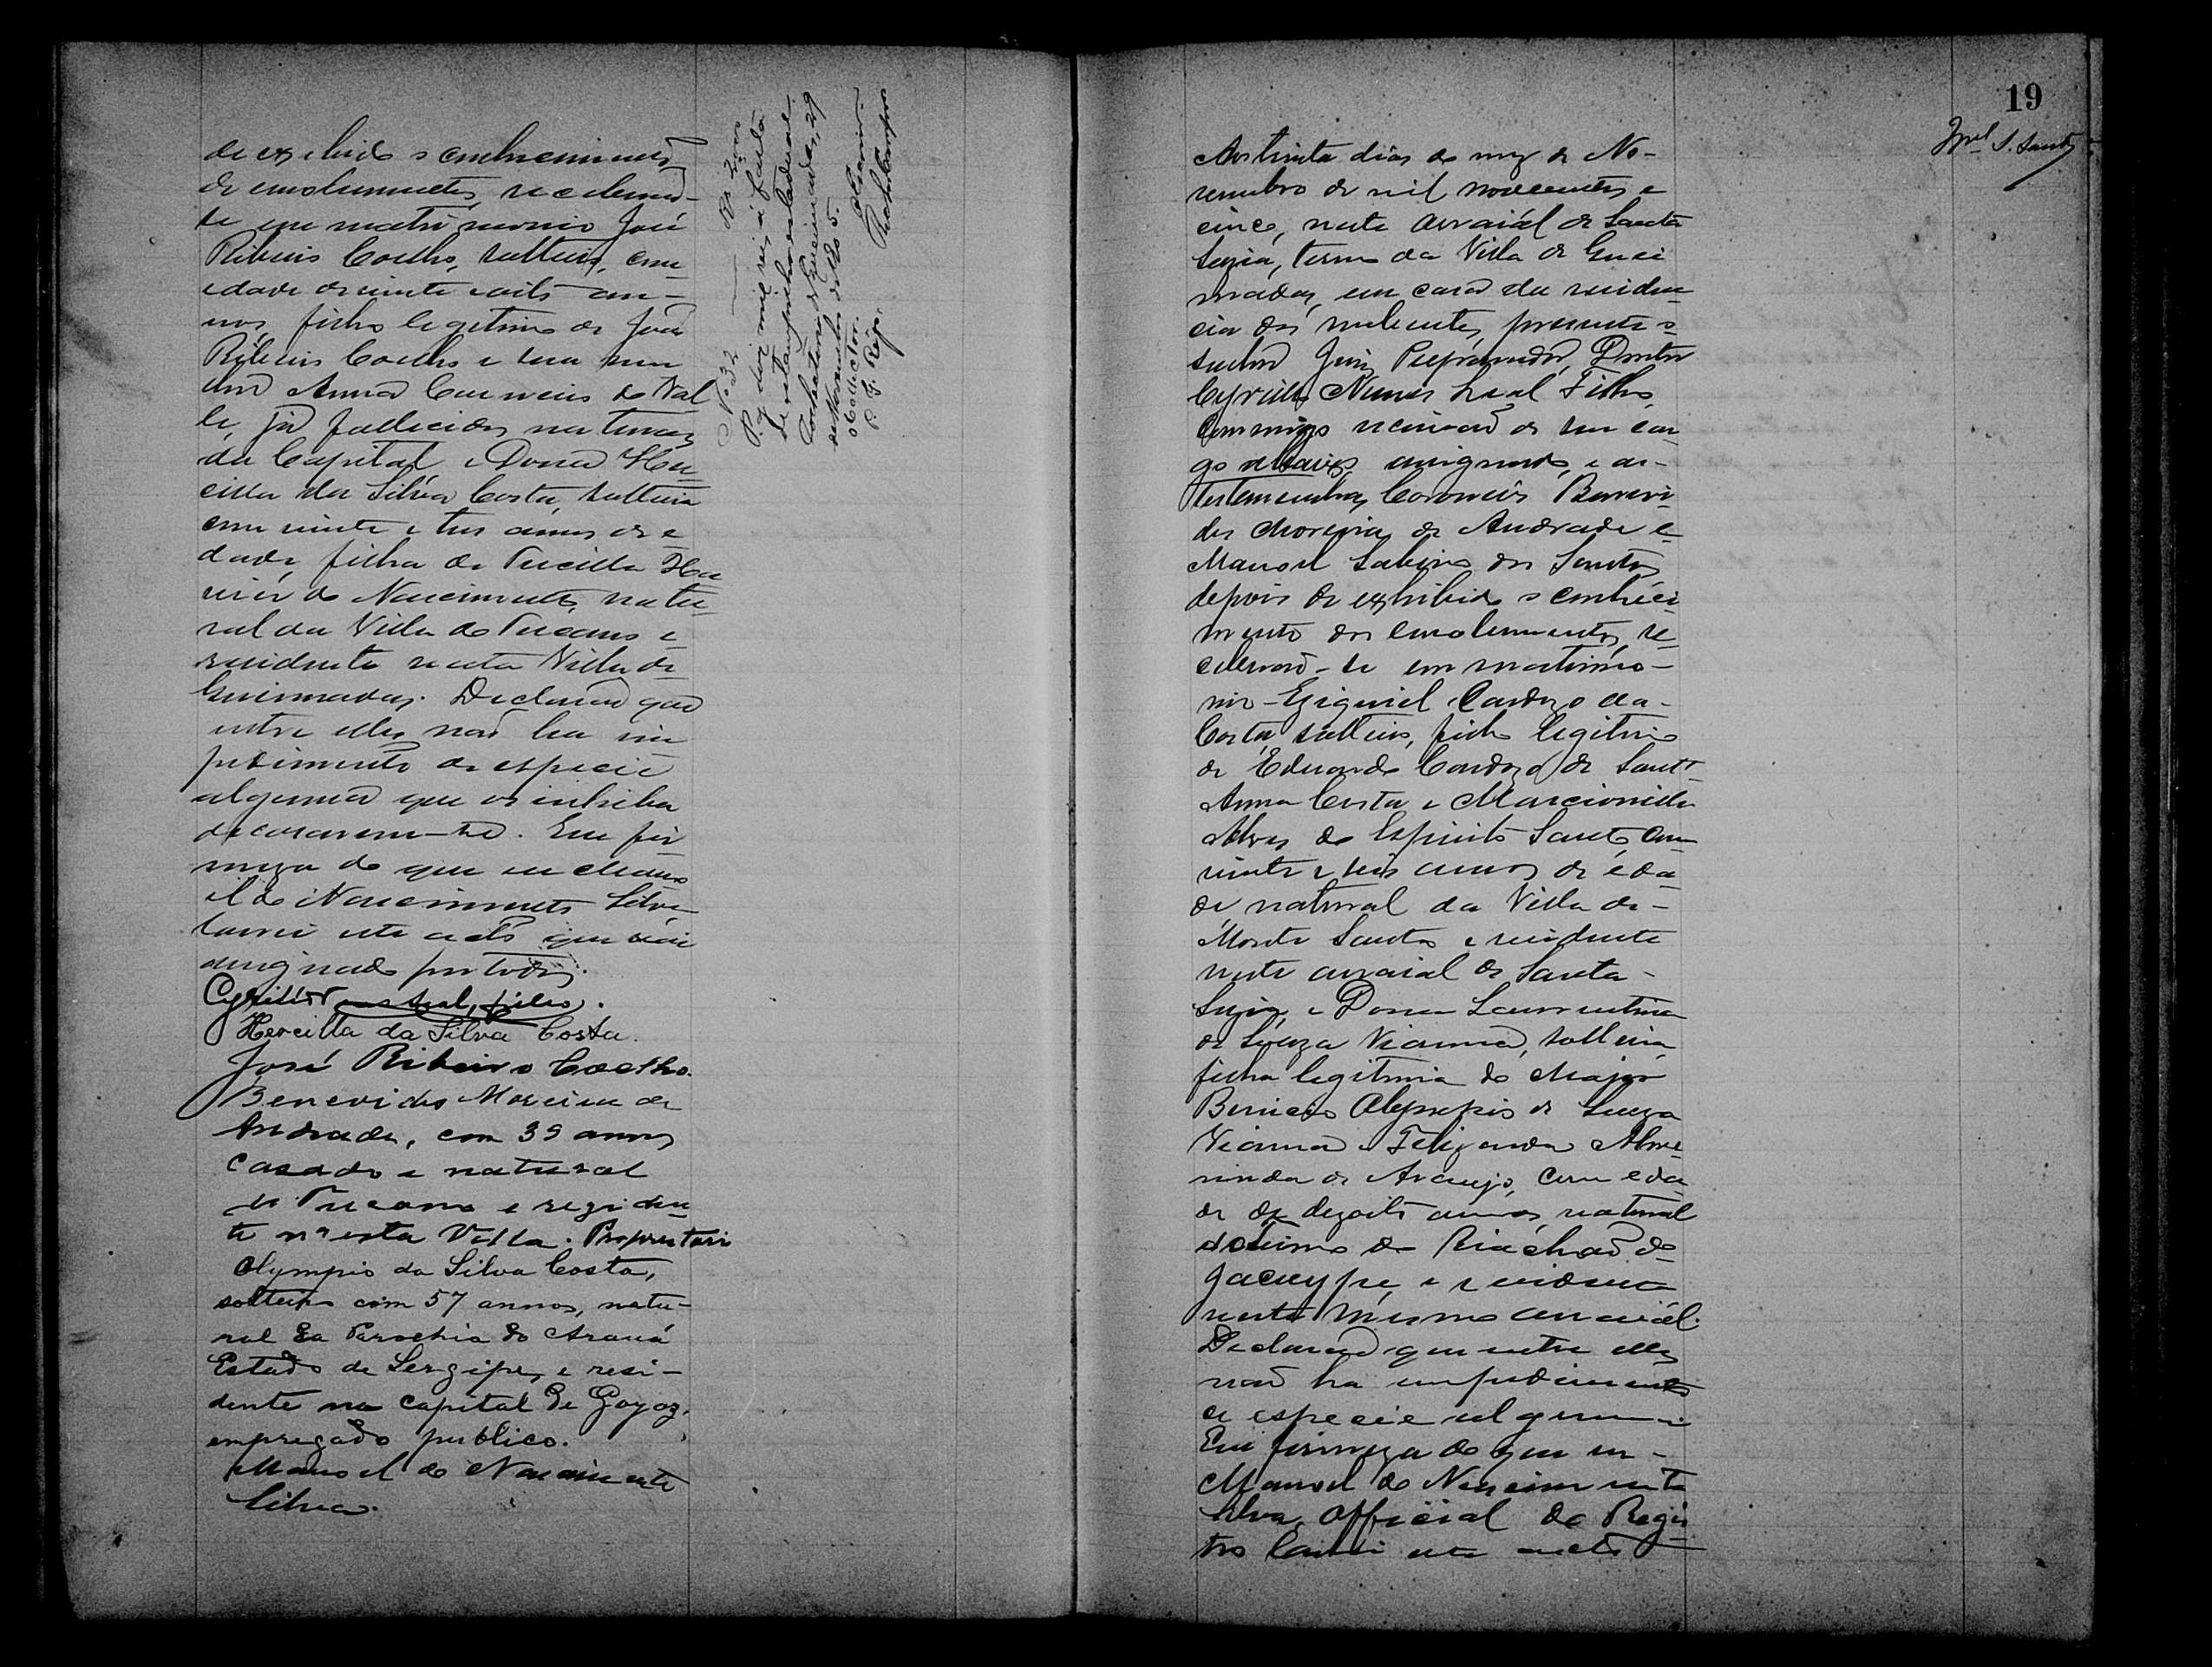 de exhibido o conhecimento
de emolumentos, receberaõ-
se em matrimonio José
Ribeiro Coelho, solteiro, com
edade de vinte e oito an-
nos, filho legitimo de João
Ribeiro Coelho e sua mu
lher Anna Carneiro do Val
le, já fallecidos naturaes
da Capital e Dona Her
cilla da Silva Costa, solteira
com vinte e tres annos de e
dade, filha de Tercilla
do Nascimento, natu-
ral da Villa de Tucano e
residente nesta Villa de
Queimadas. Declaraõ que
entre elles naõ ha im
pedimento de especie
alguma que os inhiba
de casarem-se. Em fir
meza do que eu Mano
el do Nascimento Silva
lavrei este acto que vai
assignado por todos.
Cyrillo Leal, filho.
Hercilla da Silva Costa.
José Ribeiro Coelho.
Benevides Moreira de
Andrade, com 39 annos
casado e natural
de Tucano e residen
te n'esta Villa. Proprietari
Olympio da Silva Costa,
solteiro com 57 annos, natu-
ral da Parochia do Arauá
Estado de Sergipe, e resi-
dente na Capital de Goyaz,
empregado publico.
Manoel do Nascimento
Silva.
Nº 32 Rs 2000
P. g. dois mil reis á falta
de estampilha estadual.
Collectoria de Queimadas, 29
de Novembro de 1905.
O Collector.
P. G. Rêgo.
19
Mel S. Santos
Aos trinta dias do mez de No-
vembro de mil novecentos e
cinco, neste arraiál de Santa
Luzia, termo da Villa de Quei
madas, em casa da residen
cia dos nubentes, presente o
senhor Juiz Preparador, Doutor
Cyrillo Nunes Leal Filho,
commigo escrivaõ de seu car
go abaixo assignado, e as
testemunhas, Coroneis Benevi
des Moreira de Andrade e
Manoel Sabino dos Santos
depois de exhibido o conheci
mento dos emolumentos, re
ceberaõ-se em matrimo-
nio - Eziquiel Cardozo da
Costa, solteiro, filho legitimo
de Eduardo Cardozo de Sant'
Anna Costa e Marcionilla
Alves do Espirito Santo, com
vinte e seis annos de eda-
de, natural da Villa de -
Monte Santo e residente
neste arraial de Santa -
Luzia, e Dona Laurentina
de Souza Vianna, solteira,
filha legitima do Major
de Souza
Vianna e Felizarda
de Araujo, com eda
de de dezoito annos, natural
do termo do Riachaõ do
Jacuype, e residente
neste mesmo arraiál.
Declaraõ que entre elles
naõ ha impedimento
de especie alguma
Em firmeza do que eu -
Manoel do Nascimento
Silva, Official do Regis
tro lavrei este acto